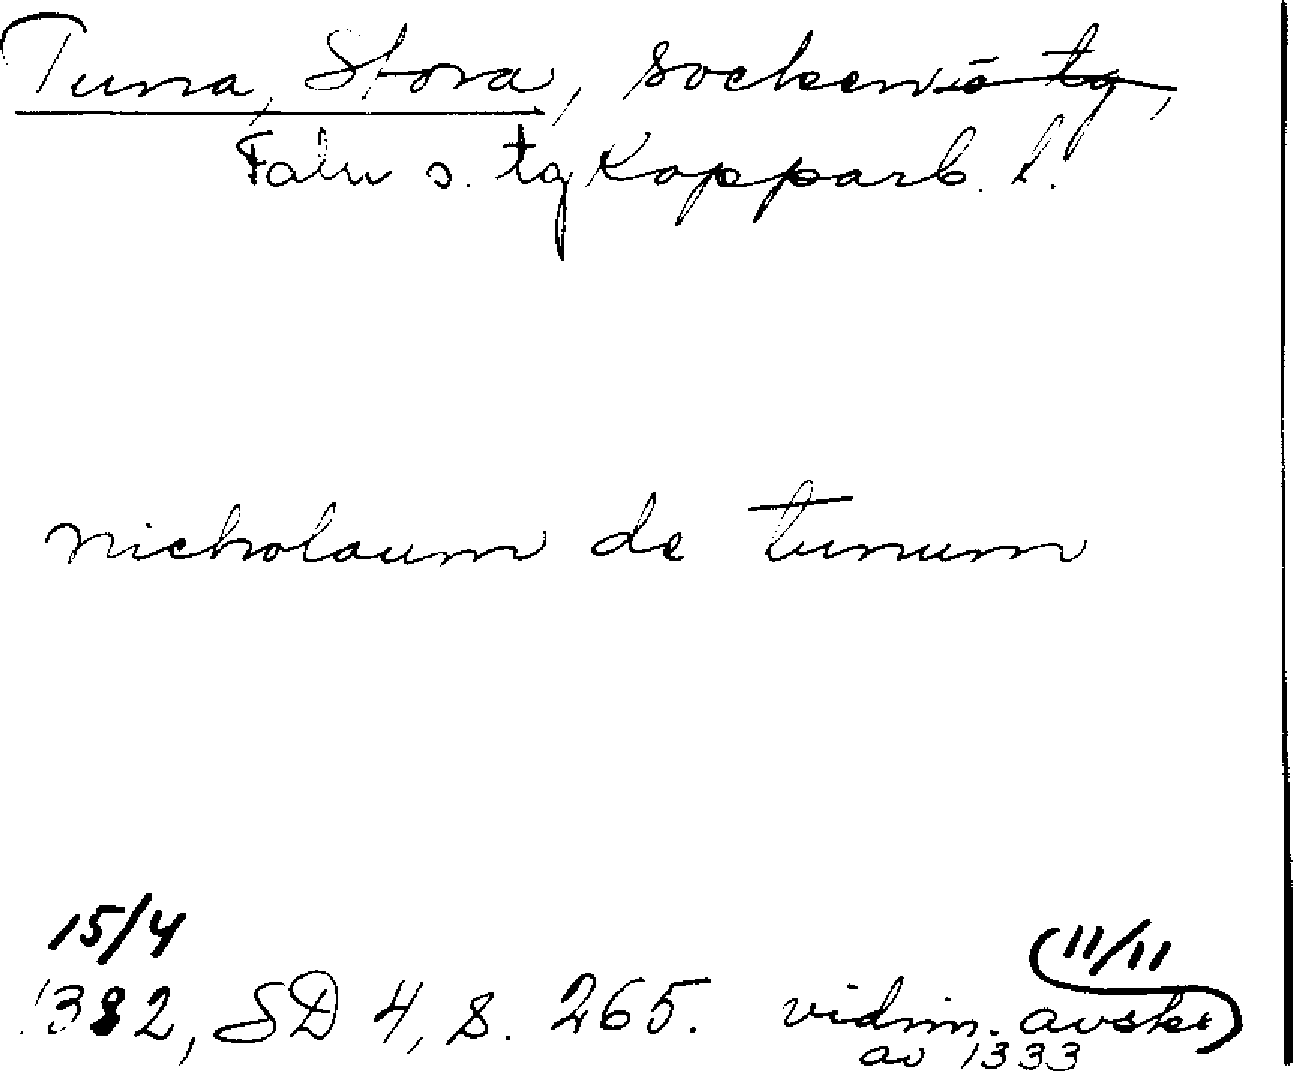 Tuna, Stora, sockenö tg,
Falu s. tg Kopparb. l.
nicholaum de tunum
15/4 (11/11
1332, SD 4, s. 265. vidim. avskr)
av 1333